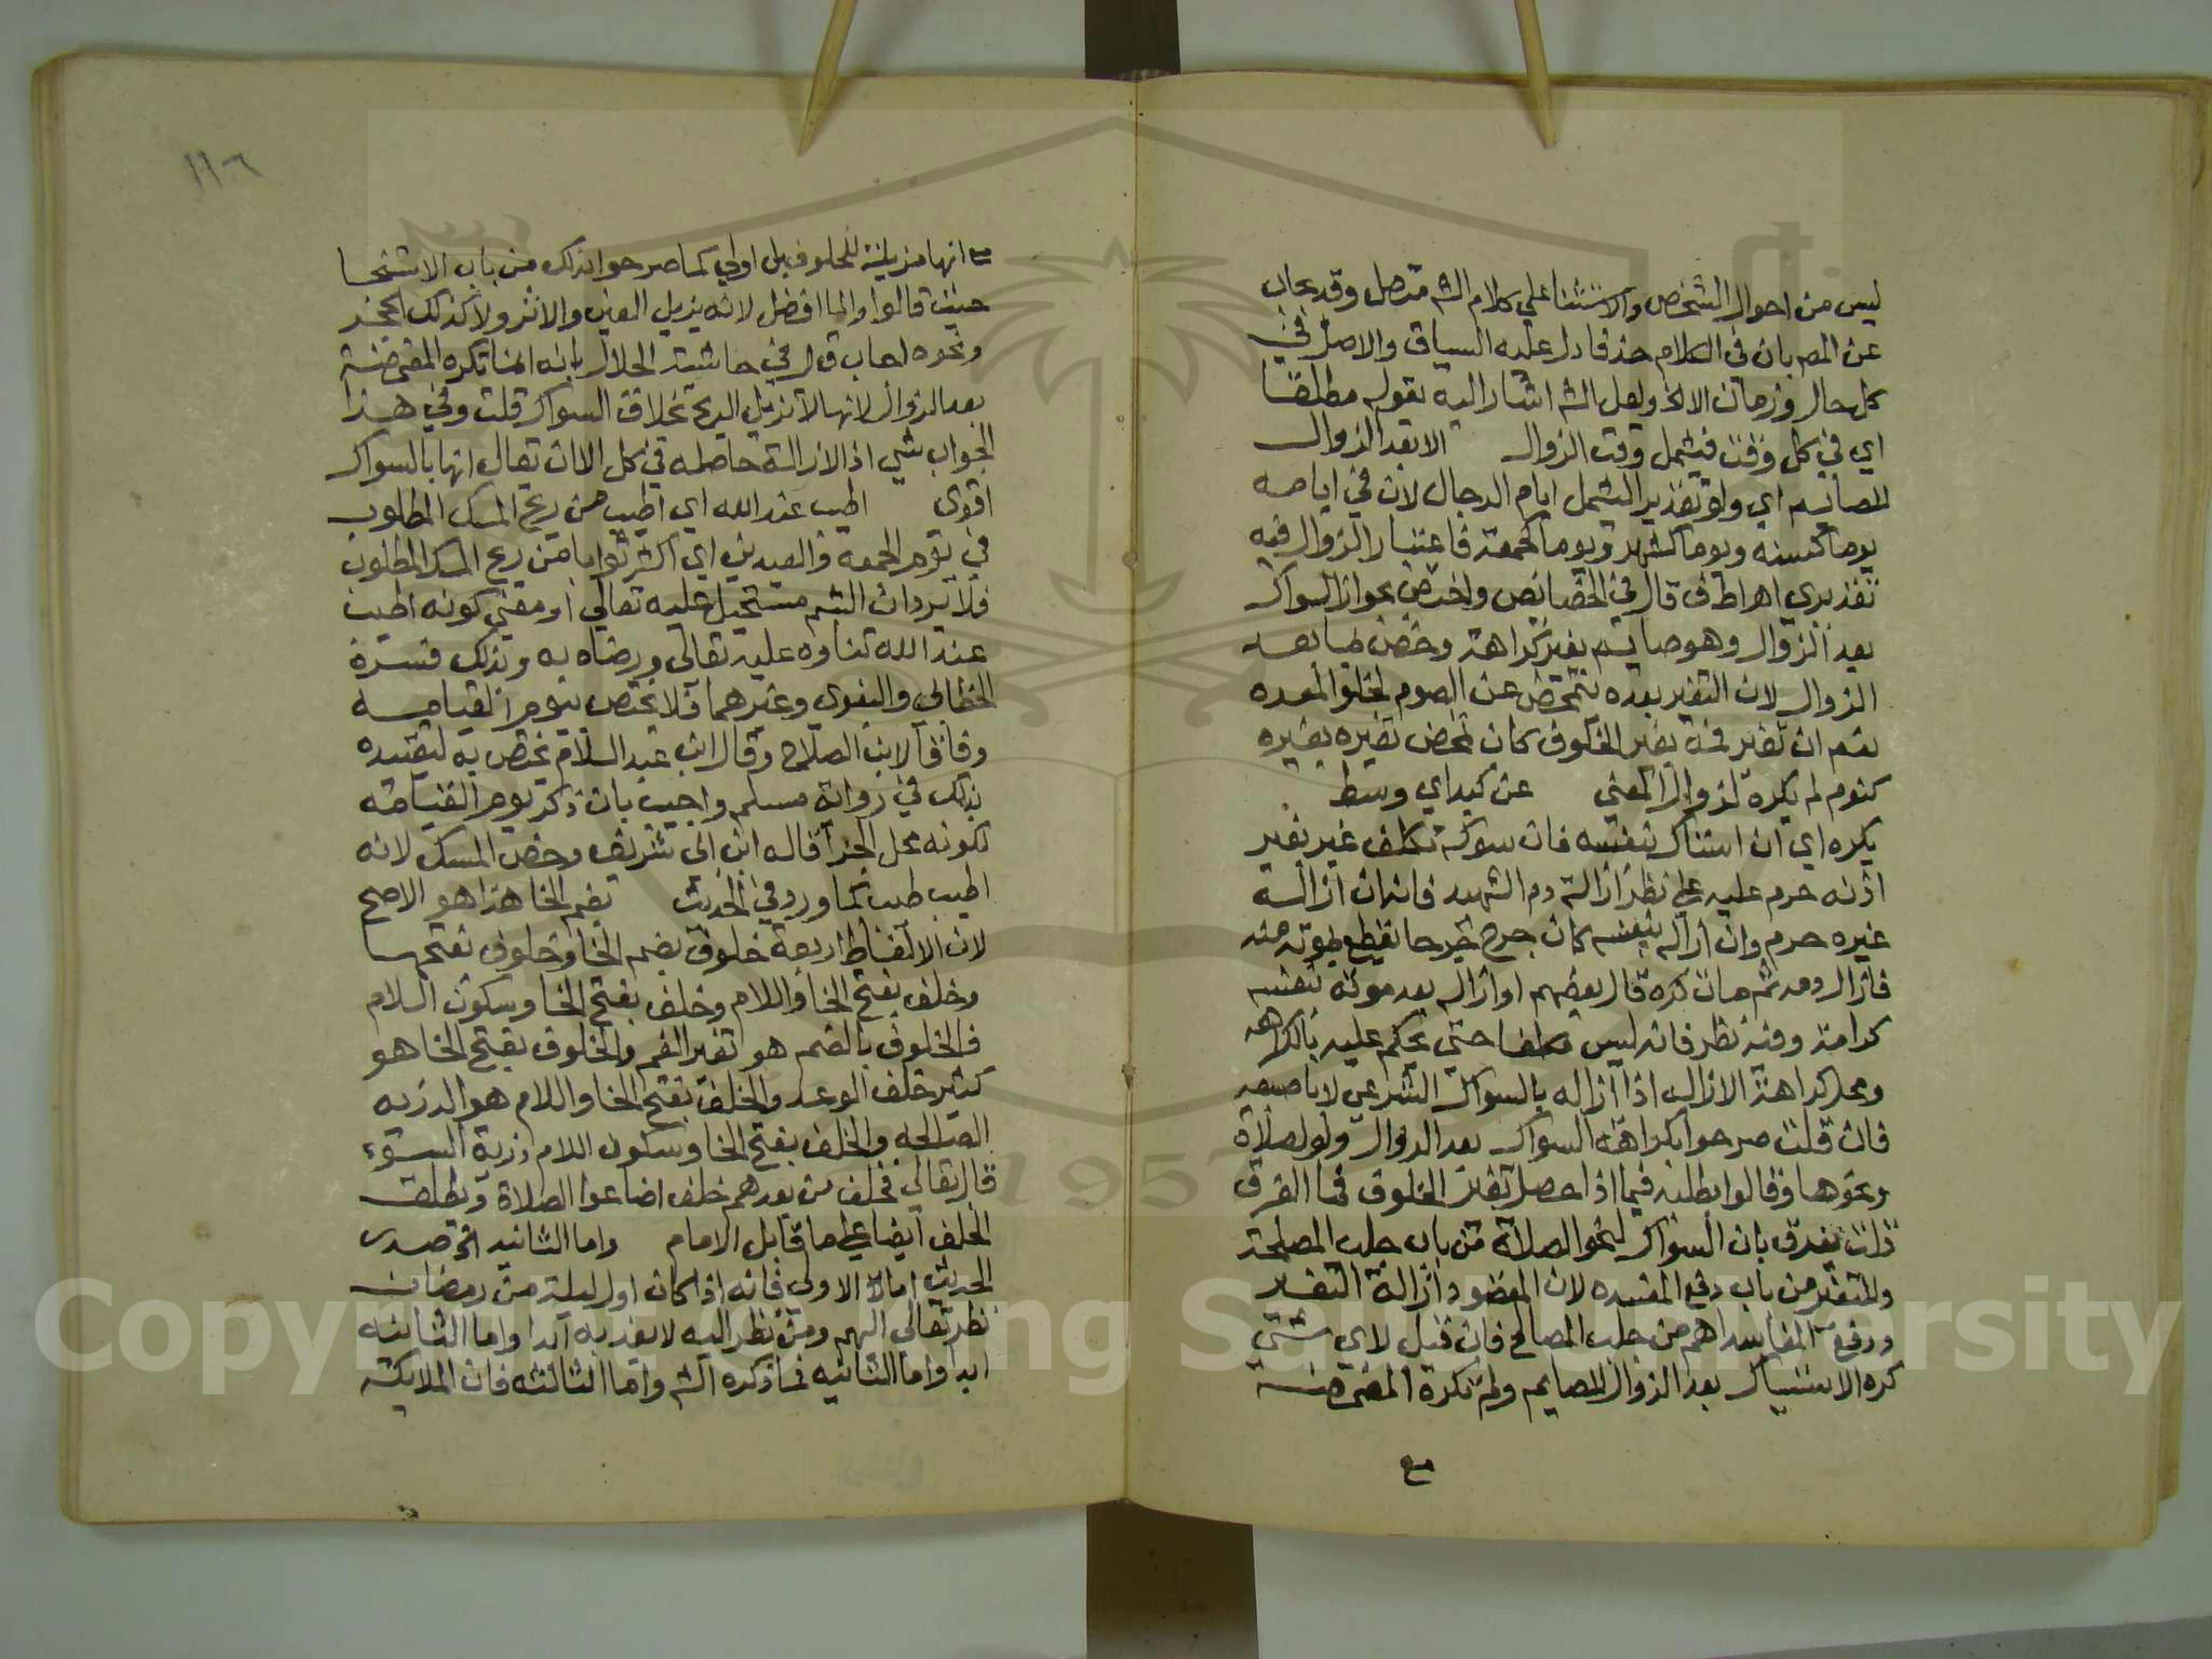 ليس من احوال الشخص والاستثنا علي كلام الشم متصل وقد يجاب
عن المصم بان في الكلام حذفا دل عليه السياق والاصل في
كل حال وزمان الا الخ ولعل الشم اشار اليه بقوله مطلقا
اي في كل وقت فيشمل وقت الزوال الا بعد الزوال
للصايم اي ولو تقديرا ليشمل ايام الدجال لان في ايامه
يوما كسنه ويوما كشهر ويوما كجمعة فاعتبار الزوال فيه
تقديري اه اط ف قال في الخصايص واختص بجواز السواك
بعد الزوال وهو صايم بغير كراهة وخص بما بعد
الزوال لان التغير بعده يتمحض عن الصوم لخلو المعده
نعم ان تغير فمه بغير الخلوف كان تمحض تغيره بغيره
كنوم لم يكره لزوال المعني عن كيد اي وسط
يكره اي ان استاك بنفسه فان سوكه مكلف غير بغير
اذنه حرم عليه علي نظر ازالة دم الشهيد فانه ان ازاله
غيره حرم وان ازاله بنفسه كان جرح جرحا نقطع بموته منه
فازال دمه ثم مات كره قال بعضهم او ازاله بعد موته بنفسه
كرامة وفيه نظر فانه ليس مكلفا حتي يحكم عليه بالكراهه
ومحل كراهة الازاله اذا ازاله بالسواك الشرعي لا باصبعه
فان قلت صرحوا بكراهة السواك بعد الزوال ولو لصلاة
ونحوها وقالوا بطلبه فيما اذا حصل تغير الخلوف فما الفرق
قلت يفرق بان السواك لنحو الصلاة من باب جلب المصلحة
والمتغير من باب دفع المفسده لان المقصود ازالة التغير
ودفع المفاسد اهم من جلب المصالح فان قيل لاي شي
كره الاستياك بعد الزوال للصايم ولم تكره المضمضة
مع
١١٦
مع انها مزيلة للخلوف بل اولي كما صرحوا بذلك من باب الاستنجا
حيث قالوا والما افضل لانه يزيل العين والاثر ولا كذلك الحجر
ونحوه اجاب ق ل في حاشيته الجلال بانه انما تكره المضمضة
بعد الزوال لانها لا تزيل الريح بخلاف السواك قلت وفي هذا
الجواب شي اذ الازالة حاصله في كل الا ان يقال انها بالسواك
اقوي اطيب عند الله اي اطيب من ريح المسك المطلوب
في يوم الجمعة والعيدين اي اكثر ثوابا من ريح المسك المطلوب
فلا يرد ان الشم مستحيل عليه تعالي او معني كونه اطيب
عند الله ثناوه عليه تعالي ورضاه به وبذلك فسره
الخطابي والبغوي وغيرهما فلا يختص بيوم القيامه
وفاقا لابن الصلاح وقال ابن عبد السلام يختص به لتقييده
بذلك في رواية مسلم واجيب بان ذكر يوم القيامة
لكونه محل الجزا قاله ابن ابي شريف وخص المسك لانه
اطيب طيب كما ورد في الحديث بضم الخا هذا هو الاصح
لان الالفاظ اربعة خلوف بضم الخا وخلوف بفتحها
وخلف بفتح الخا واللام وخلف بفتح الخا وسكون اللام
فالخلوف بالضم هو تغير الفم والخلوف بفتح الخا هو
كثير خلف الوعد والخلف بفتح الخا واللام هو الذريه
الصالحه والخلف بفتح الخا وسكون اللام ذرية السوء
قال تعالي فخلف من بعدهم خلف اضاعوا الصلاة ويطلق
الخلف ايضا علي ما قابل الامام واما الثانيه الخ صدر
الحديث اما الاولي فانه اذا كان اول ليلة من رمضان
نظر تعالي اليهم ومن نظر اليه لا يعذبه ابدا واما الثانيه
ابدا واما الثانيه فما ذكره الشم واما الثالثه فان الملايكة
Copyright © King Saud University
1957